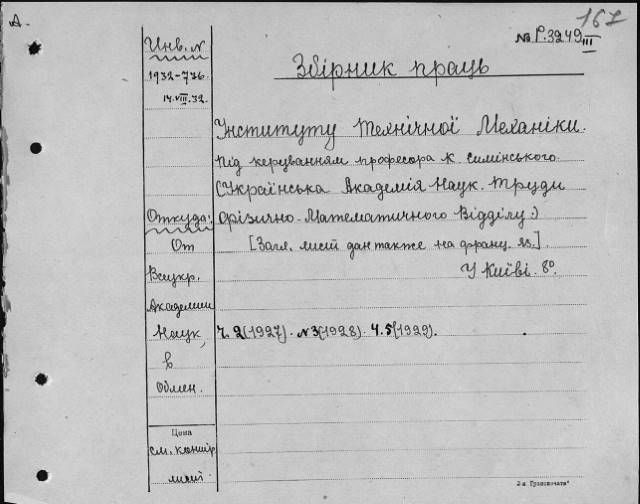 А.
167
№ Р.3249
III
Инв. №
1932-776
14.VIII.32.
Збірник праць
Інституту Технічної Механіки.
Під керуванням професора К Симінського.
(Українська Академія Наук. Труди
Фізично-Математичного Відділу:)
[Загл. лист дан также на франц. яз.].
У Київі. 8º
Откуда:
От
Всеукр.
Академии
Наук,
в
Обмен.
ч. 2(1927). №3(1928). ч. 5(1929).
Цена
см. контр.
лист
2-я „Транспечать"